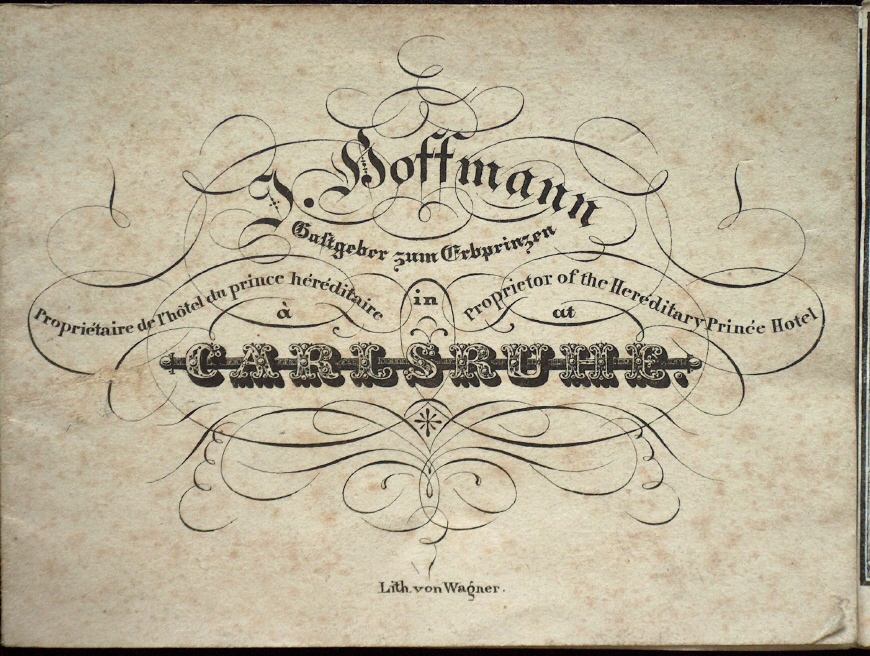 J. Hoffmann
Gastgeber zum Erbprinzen
Propriétaire de l'hôtel du prince héréditaire
in
Proprietor of the Hereditary Prince Hotel
à
at
CARLSRUHE.
Lith. von Wagner.